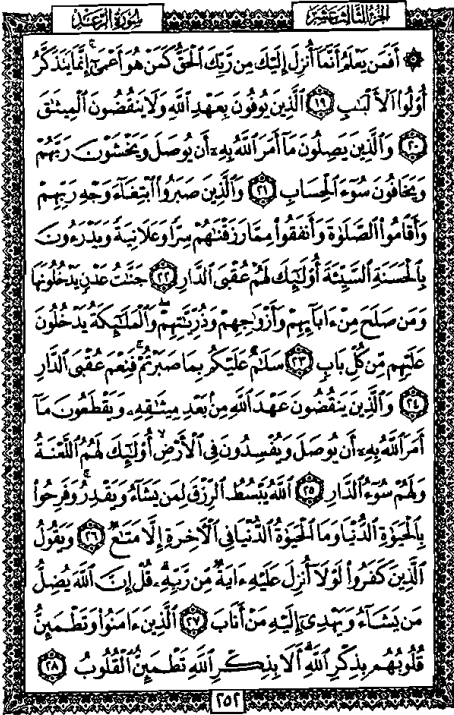 الجزء الثالث عشر
سورة الرعد
۞ أَفَمَن يَعْلَمُ أَنَّمَآ أُنزِلَ إِلَيْكَ مِن رَّبِّكَ ٱلْحَقُّ كَمَنْ هُوَ أَعْمَىٰٓ ۚ إِنَّمَا يَتَذَكَّرُ
أُو۟لُوا۟ ٱلْأَلْبَـٰبِ ١٩ ٱلَّذِينَ يُوفُونَ بِعَهْدِ ٱللَّهِ وَلَا يَنقُضُونَ ٱلْمِيثَـٰقَ
٢٠ وَٱلَّذِينَ يَصِلُونَ مَآ أَمَرَ ٱللَّهُ بِهِۦٓ أَن يُوصَلَ وَيَخْشَوْنَ رَبَّهُمْ
وَيَخَافُونَ سُوٓءَ ٱلْحِسَابِ ٢١ وَٱلَّذِينَ صَبَرُوا۟ ٱبْتِغَآءَ وَجْهِ رَبِّهِمْ
وَأَقَامُوا۟ ٱلصَّلَوٰةَ وَأَنفَقُوا۟ مِمَّا رَزَقْنَـٰهُمْ سِرًّا وَعَلَانِيَةً وَيَدْرَءُونَ
بِٱلْحَسَنَةِ ٱلسَّيِّئَةَ أُو۟لَـٰٓئِكَ لَهُمْ عُقْبَى ٱلدَّارِ ٢٢ جَنَّـٰتُ عَدْنٍ يَدْخُلُونَهَا
وَمَن صَلَحَ مِنْ ءَابَآئِهِمْ وَأَزْوَٰجِهِمْ وَذُرِّيَّـٰتِهِمْ ۖ وَٱلْمَلَـٰٓئِكَةُ يَدْخُلُونَ
عَلَيْهِم مِّن كُلِّ بَابٍ ٢٣ سَلَـٰمٌ عَلَيْكُم بِمَا صَبَرْتُمْ ۚ فَنِعْمَ عُقْبَى ٱلدَّارِ
٢٤ وَٱلَّذِينَ يَنقُضُونَ عَهْدَ ٱللَّهِ مِنۢ بَعْدِ مِيثَـٰقِهِۦ وَيَقْطَعُونَ مَآ
أَمَرَ ٱللَّهُ بِهِۦٓ أَن يُوصَلَ وَيُفْسِدُونَ فِى ٱلْأَرْضِ ۙ أُو۟لَـٰٓئِكَ لَهُمُ ٱللَّعْنَةُ
وَلَهُمْ سُوٓءُ ٱلدَّارِ ٢٥ ٱللَّهُ يَبْسُطُ ٱلرِّزْقَ لِمَن يَشَآءُ وَيَقْدِرُ ۚ وَفَرِحُوا۟
بِٱلْحَيَوٰةِ ٱلدُّنْيَا وَمَا ٱلْحَيَوٰةُ ٱلدُّنْيَا فِى ٱلْـَٔاخِرَةِ إِلَّا مَتَـٰعٌ ٢٦ وَيَقُولُ
ٱلَّذِينَ كَفَرُوا۟ لَوْلَآ أُنزِلَ عَلَيْهِ ءَايَةٌ مِّن رَّبِّهِۦ ۗ قُلْ إِنَّ ٱللَّهَ يُضِلُّ
مَن يَشَآءُ وَيَهْدِىٓ إِلَيْهِ مَنْ أَنَابَ ٢٧ ٱلَّذِينَ ءَامَنُوا۟ وَتَطْمَئِنُّ
قُلُوبُهُم بِذِكْرِ ٱللَّهِ ۗ أَلَا بِذِكْرِ ٱللَّهِ تَطْمَئِنُّ ٱلْقُلُوبُ ٢٨
٢٥٢